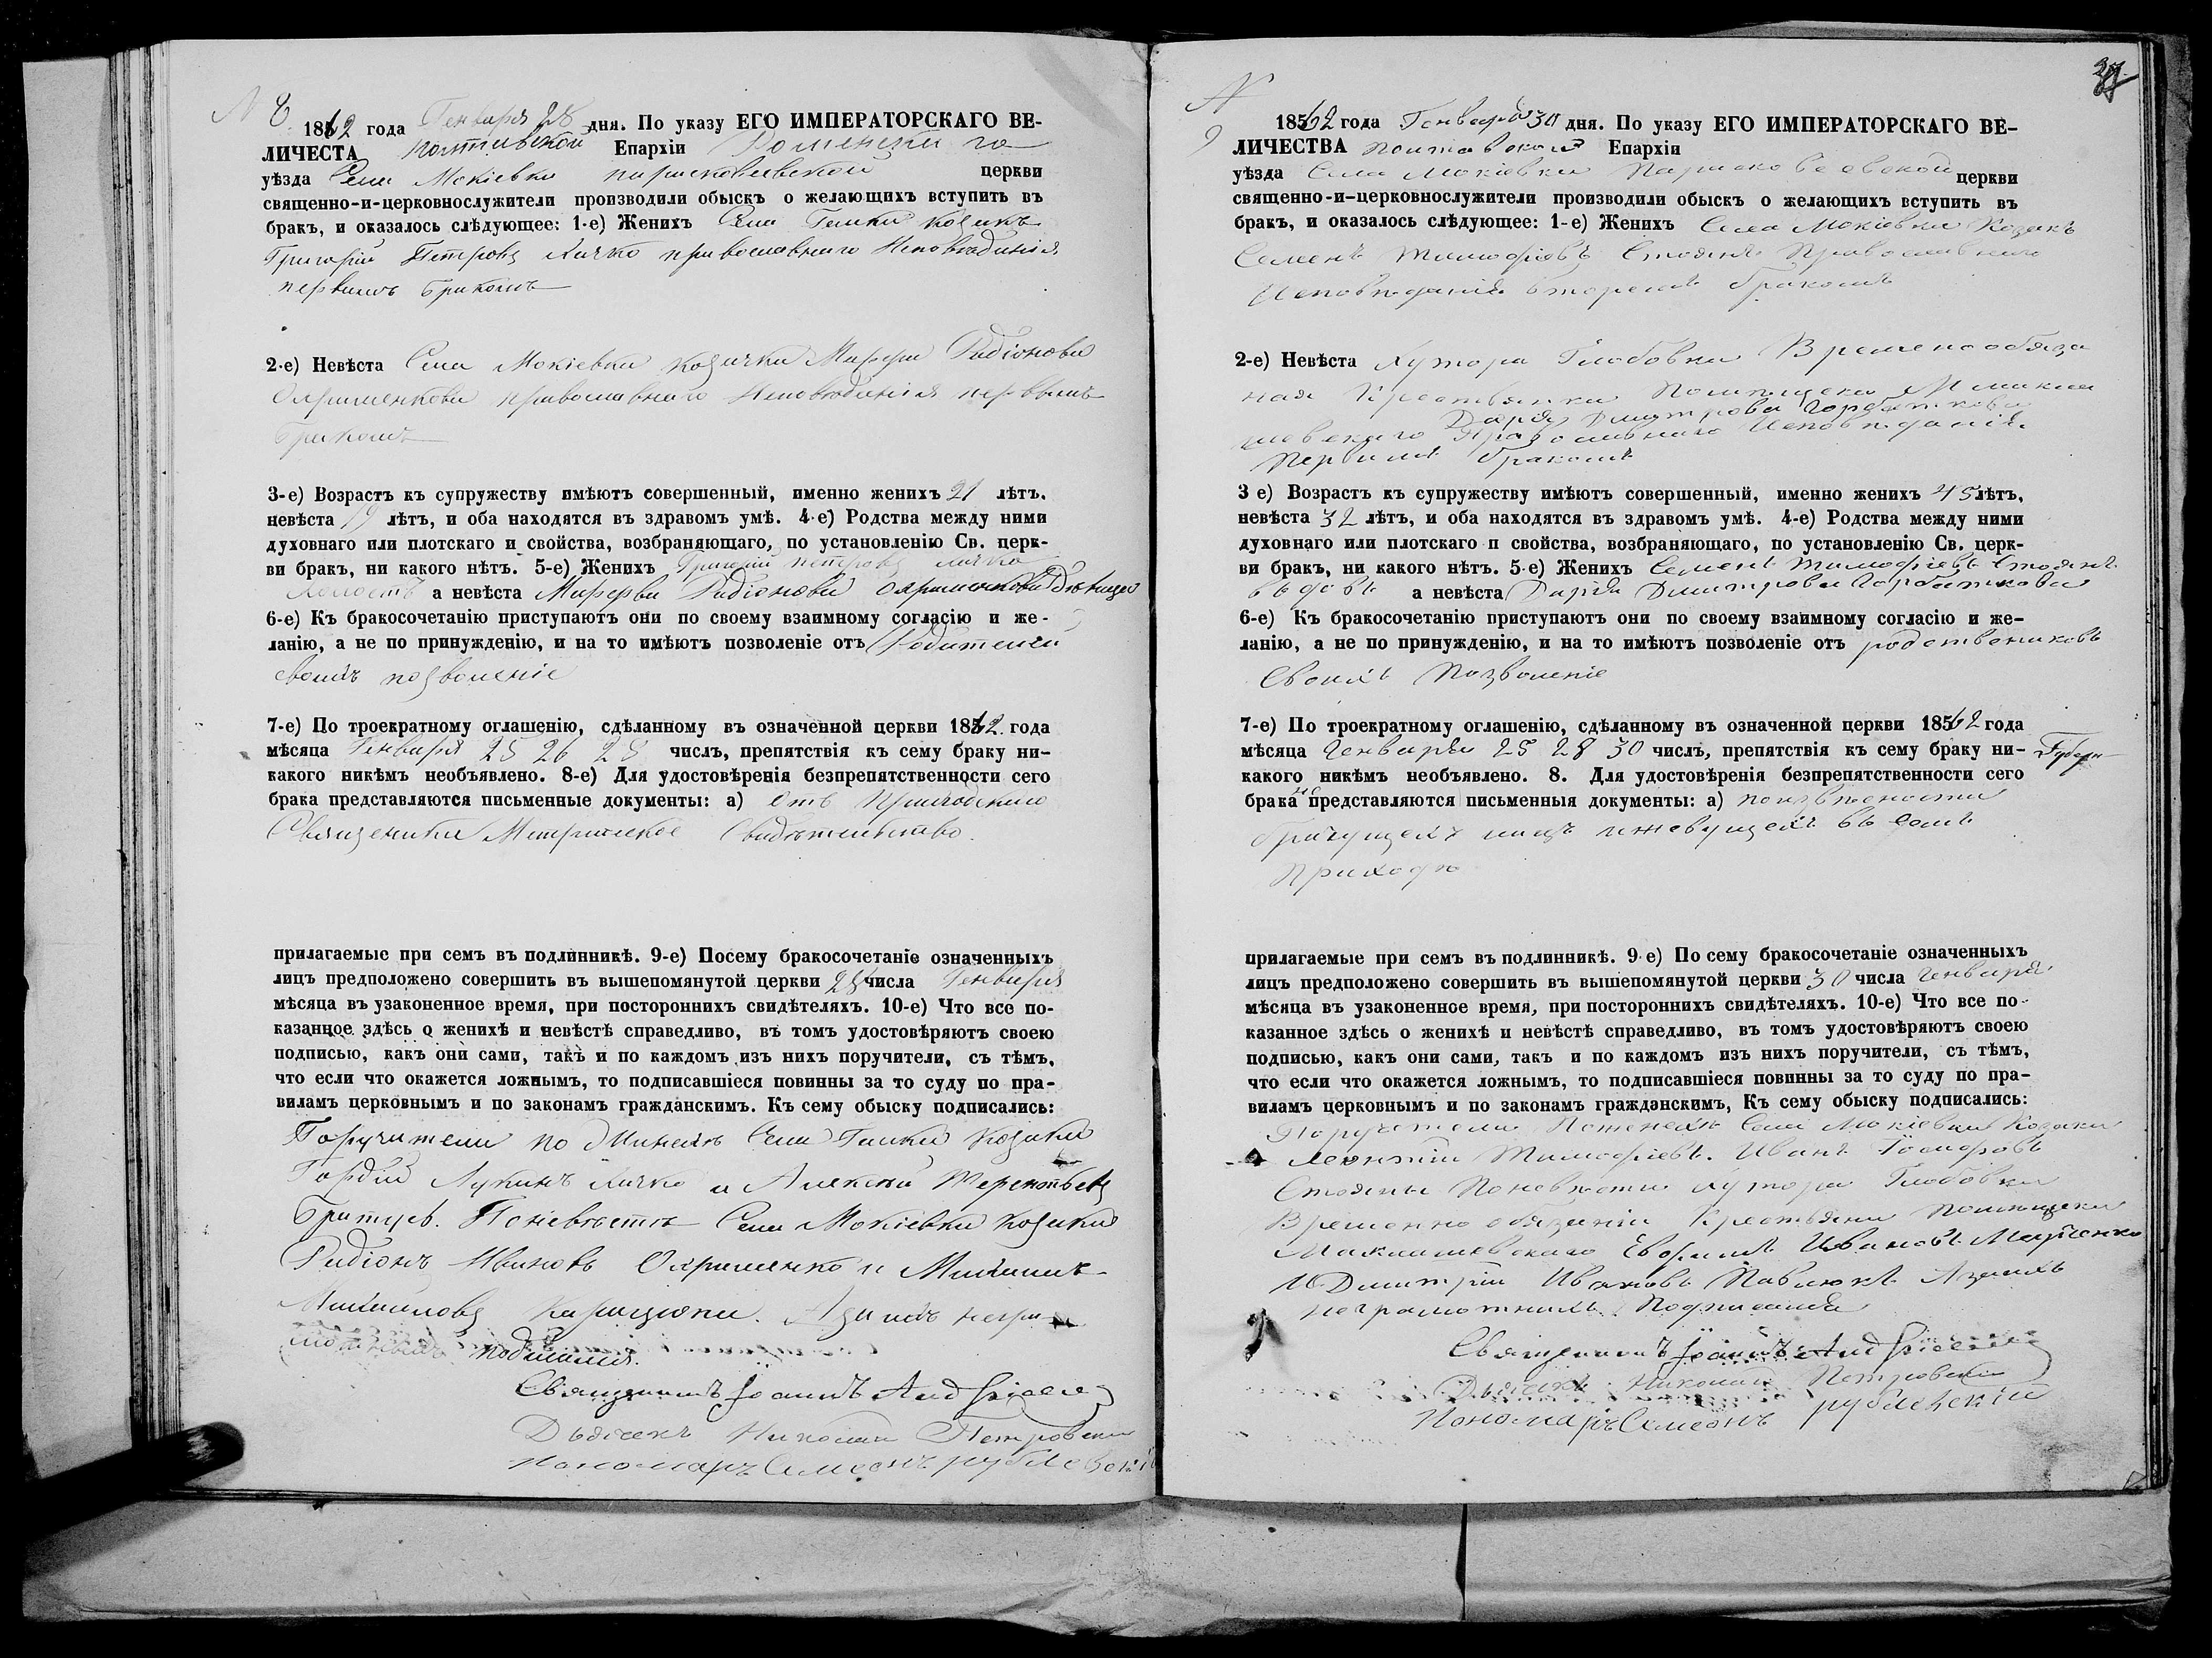 N 8
1862 года Генваря 28 дня. По указу ЕГО ИМПЕРАТОРСКАГО ВЕ-
ЛИЧЕСТА Полтавской Епархіи Роменскаго
уѣзда Села Мокіевки парасковіевской церкви
священно-и-церковнослужители производили обыскъ о желающихъ вступить въ
бракъ, и оказалось слѣдующее: 1-е) Женихъ Села Галки козакъ
Григорій Петровъ Личко православнаго Исповѣданія
первымъ бракомъ
2-е) Невѣста Села Мокіевки козачка Марфа Радіонова
Охрименкова православнаго Исповѣданія первымъ
бракомъ
3-е) Возрастъ къ супружеству имѣютъ совершенный, именно женихъ 21 лѣтъ.
невѣста 19 лѣтъ, и оба находятся въ здравомъ умѣ. 4-е) Родства между ними
духовнаго или плотскаго и свойства, возбраняющаго, по установленію Св. церк-
ви бракъ, ни какого нѣтъ. 5-е) Женихъ Григорій Петровъ Личко
Холостъ а невѣста Радіонова Охрименкова дѣвица
6-е) Къ бракосочетанію приступаютъ они по своему взаимному согласію и же-
ланію, а не по принужденію, и на то имѣютъ позволеніе отъ Родителей
своихъ позволеніе
7-е) По троекратному оглашенію, сдѣланному въ означенной церкви 1862 года
мѣсяца Генваря 25 26 28 числъ, препятствія къ сему браку ни-
какого никѣмъ необъявлено. 8-е) Для удостовѣренія безпрепятственности сего
брака представляются письменные документы: а) Отъ
Священика Свидѣтельство.
прилагаемые при семъ въ подлинникѣ. 9-е) Посему бракосочетаніе означенныхъ
лицъ предположено совершить въ вышепомянутой церкви 28 числа Генваря
мѣсяца въ узаконенное время, при постороннихъ свидѣтеляхъ. 10-е) Что все по-
казанное здѣсь о женихѣ и невѣстѣ справедливо, въ томъ удостовѣряютъ своею
подписью, какъ они сами, такъ и по каждомъ изъ нихъ поручители, съ тѣмъ,
что если что окажется ложнымъ, то подписавшіеся повинны за то суду по пра-
виламъ церковнымъ и по законамъ гражданскимъ. Къ сему обыску подписались:
Поручители по Села Галки козаки
Гордій Лукинъ Личко и Алексѣй
Поневѣстѣ Села Мокіевки козаки
Радіонъ Ивановъ Охрименко и Михаилъ
Михаиловъ
Священникъ Іоаннъ
Дьячекъ Николай Петровскій
Пономарь Симеонъ
N
9
1862 года Генваря 30 дня. По указу ЕГО ИМПЕРАТОРСКАГО ВЕ-
ЛИЧЕСТВА Полтавской Епархіи
уѣзда Села Мокіевки Парасковеевской церкви
священно-и-церковнослужители производили обыскъ о желающихъ вступить въ
бракъ, и оказалось слѣдующее: 1-е) Женихъ Села Мокіевки Козакъ
Семенъ Тимофіевъ Стоянъ Православнаго
Исповѣданія вторымъ бракомъ
2-е) Невѣста Хутора Глобовки Временообяза
ная Крестьянка Помѣщека Макла
Дарія Дмитрова Горбаткова
шевскаго Православнаго Исповѣданія
Первимъ бракомъ
3 е) Возрастъ къ супружеству имѣютъ совершенный, именно женихъ 45 лѣтъ,
невѣста 32 лѣтъ, и оба находятся въ здравомъ умѣ. 4-е) Родства между ними
духовнаго или плотскаго п свойства, возбраняющаго, по установленію Св. церк-
ви бракъ, ни какого нѣтъ. 5-е) Женихъ Семенъ Тимофіевъ Стоянъ
вдовъ а невѣста Дарія Дмитрова Горбаткова
6-е) Къ бракосочетанію приступаютъ они по своему взаимному согласію и же-
ланію, а не по принужденію, и на то имѣютъ позволеніе отъ родствениковъ
Своихъ Позволеніе
7-е) По троекратному оглашенію, сдѣланному въ означенной церкви 1862 года
мѣсяца Генваря 25 28 30 числъ, препятствія къ сему браку ни-
какого никѣмъ необъявлено. 8. Для удостовѣренія безпрепятственности сего
брака не представляются письменныя документы: а) поизвѣсности
брачущехъ лицъ ижевущехъ въ
Приходѣ
прилагаемыя при семъ въ подлинникѣ. 9-е) По сему бракосочетаніе означенныхъ
лицъ предположено совершить въ вышепомянутой церкви 30 числа Генваря
мѣсяца въ узаконенное время, при постороннихъ свидѣтеляхъ. 10-е) Что все по-
казанное здѣсь о женихѣ и невѣстѣ справедливо, въ томъ удостовѣряютъ своею
подписью, какъ они сами, такъ и по каждомъ изъ нихъ поручители, съ тѣмъ,
что если что окажется ложнымъ, то подписавшіеся повинны за то суду по пра-
виламъ церковнымъ и по законамъ гражданскимъ, Къ сему обыску подписались:
Поручетели Поженехѣ Села Мокіевки Козаки
Леонтій Тимофіевъ. Иванъ
Стояны Поневѣсти Хутора Глобовки
Временно обязаніи Крестьяни Помѣщека
Маклашевскаго Ивановъ
И Дмитрій Ивановъ Павлюкъ Азанихъ
неграмотнихъ Подписался
Священникъ Іоаннъ
Дьячекъ Николай Петровскій
Пономарь Симеонъ